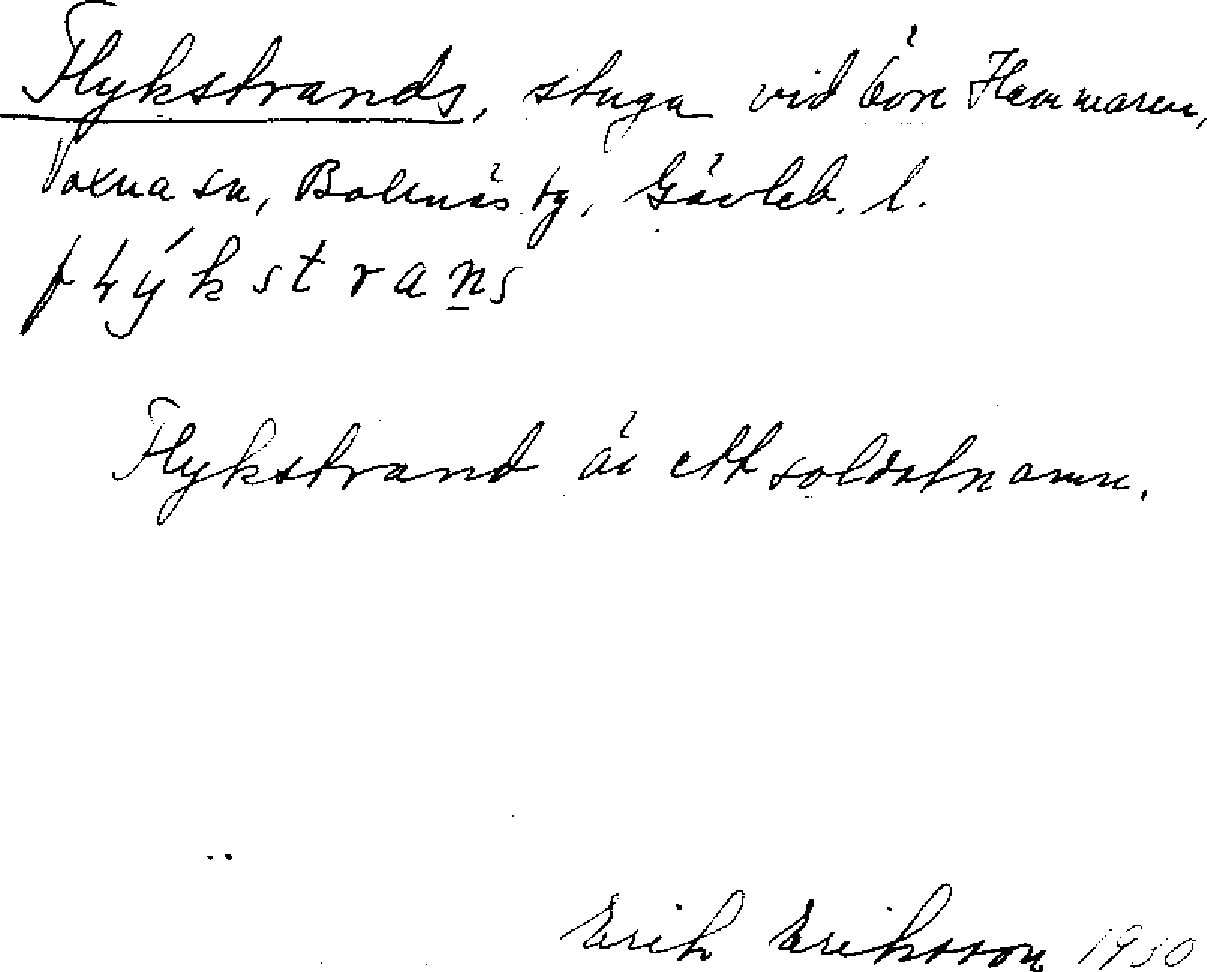 Flykstrands, stuga vid byn Hammaren,
Voxna sn, Bollnäs tg, Gävleb. l.
flýkstrans
Flykstrand är ett soldatnamn.
Erik Eriksson 1930